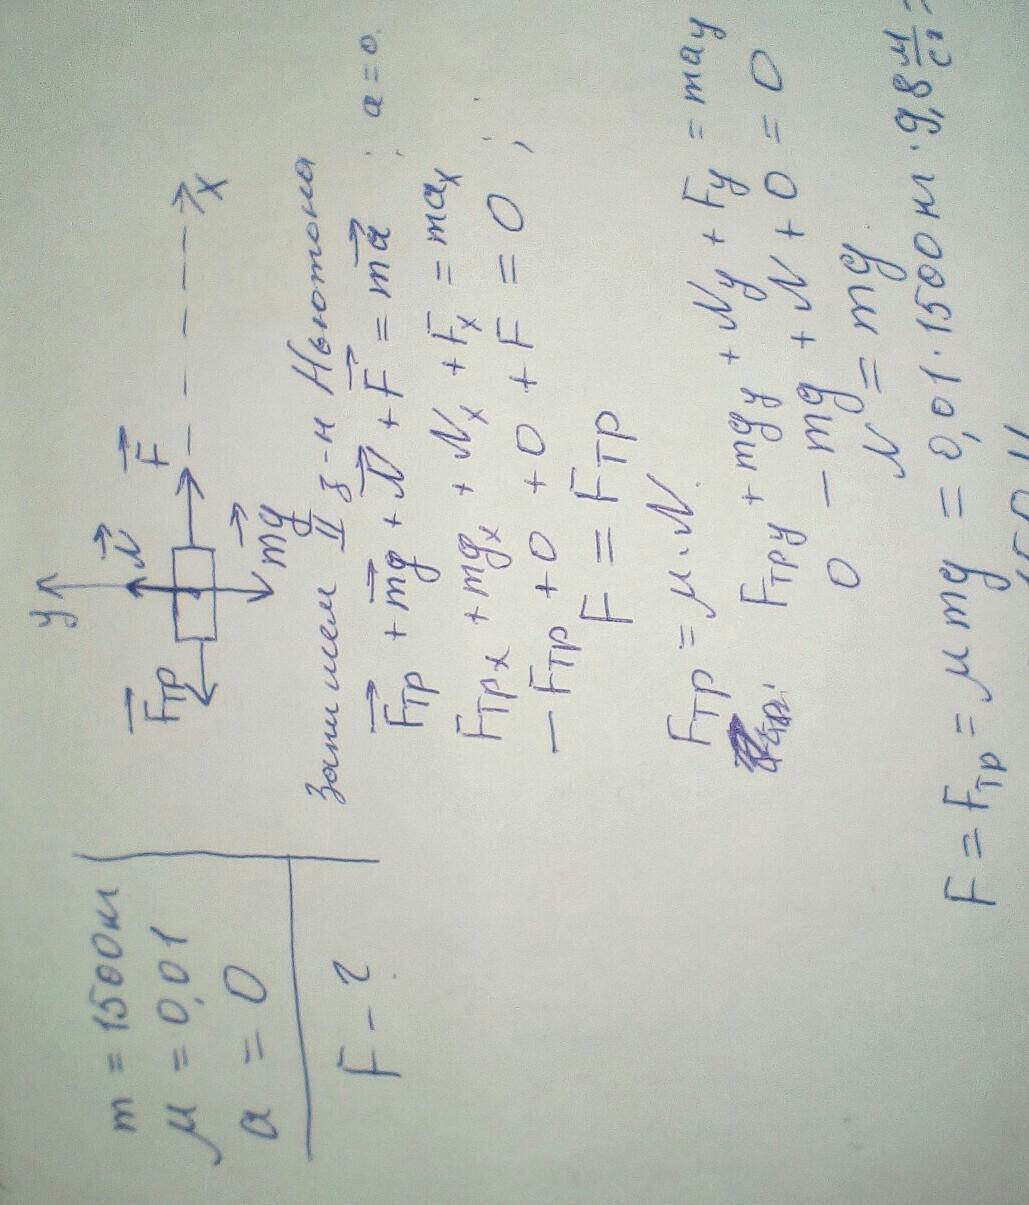 m = 1500кг
μ = 0,01
a = 0
F - ?
y
N
Fтр
F
x
mg
Запишем II з-н Ньютона
Fтр + mg + N + F = ma ; a = 0.
Fтрx + mgx + Nx + Fx = max
- Fтр + 0 + 0 + F = 0 ;
F = Fтр
Fтр = μ · N.
Fтрy + mgy + Ny + Fy = may
0 - mg + N + 0 = 0
N = mg
F = Fтр = μ mg = 0,01 · 1500 кг · 9,8 м/с² =